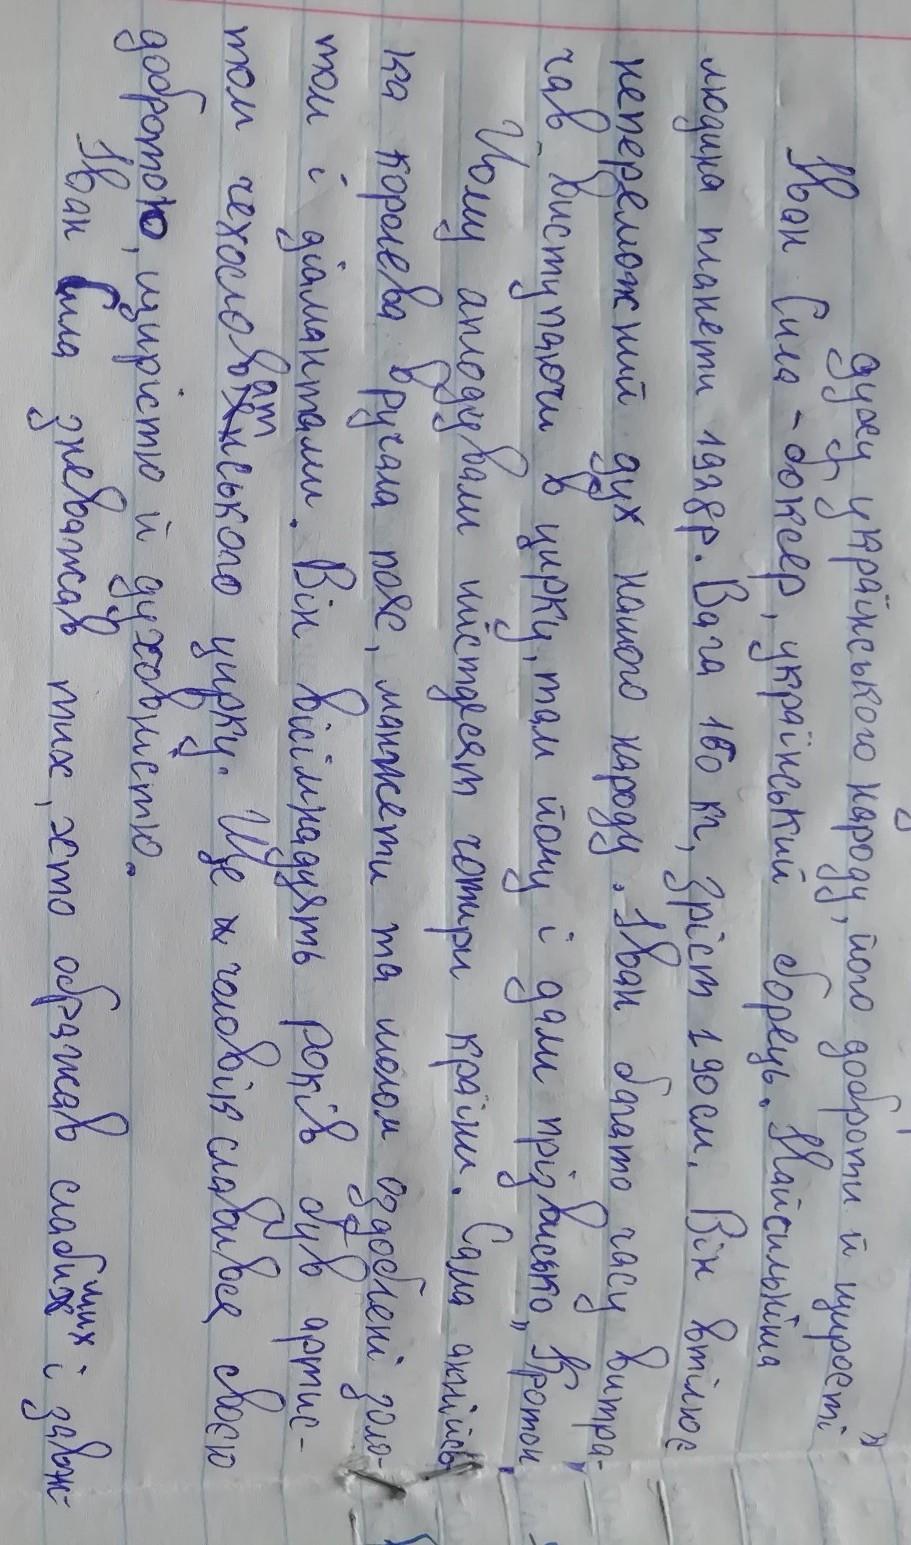 духу українського народу, його доброти й щирості"
Іван Сила - боксер, український борець. Найсильніша
людина планети 1928р. Вага 160 кг, зріст 190см. Він втілює
непереможний дух нашого народу. Іван багато часу витра-
чав виступаючи в цирку, там йому і дали прізвисько „Кротон"
Йому аплодували шістдесят чотири країни. Сама англійсь
ка королева вручала пояс, манжети та шолом оздоблені золо-
том і діамантами. Він вісімнадцять років був артис-
том чехословатського цирку. Цей чоловік славився своєю
добротою, щирістю й духовністю.
Іван Сила зневажав тих, хто ображав слабіших і завж-